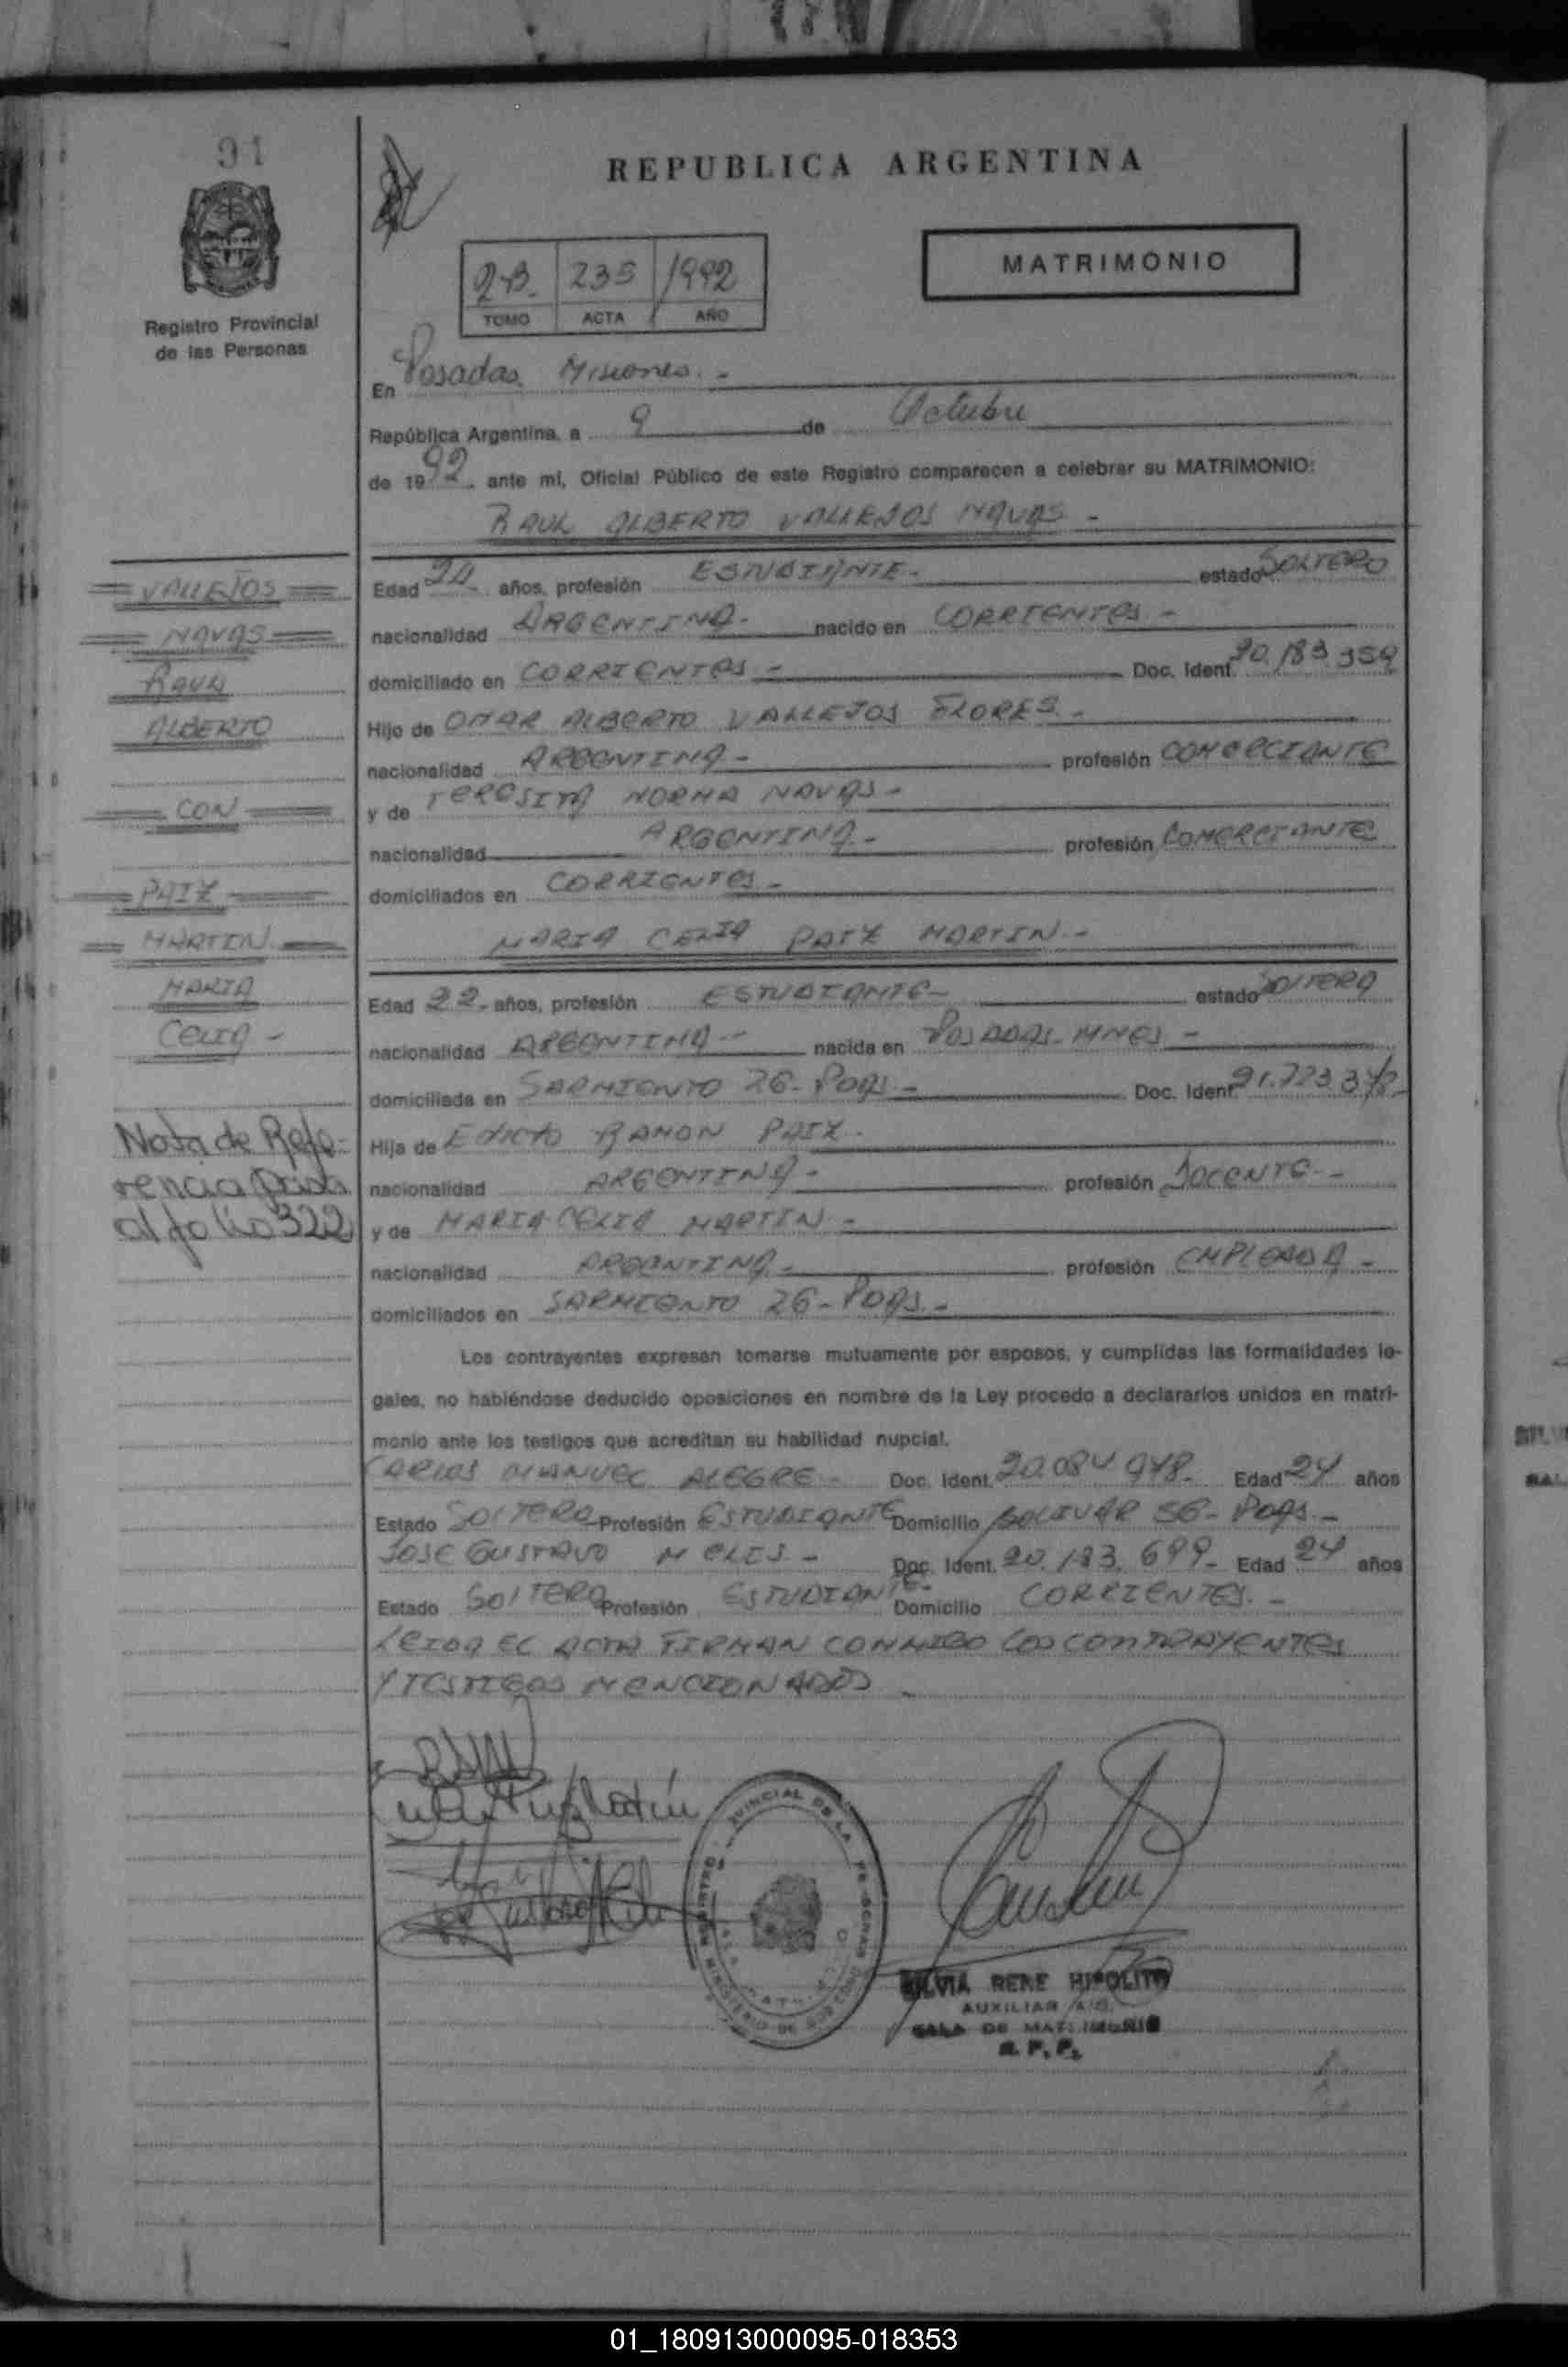 91
REPUBLICA ARGENTINA
2B. 235 1992
TOMO ACTA AÑO
MATRIMONIO
Registro Provincial
de las Personas
En Posadas. Misiones. -
República Argentina, a 9 de Octubre
de 1992, ante mí, Oficial Público de este Registro comparecen a celebrar su MATRIMONIO:
RAUL ALBERTO VALLEJOS NAVAS -
Edad 24 años, profesión ESTUDIANTE - estado SOLTERO
nacionalidad ARGENTINA - nacido en CORRIENTES -
domiciliado en CORRIENTES - Doc. Ident. 20.183.359
Hijo de OMAR ALBERTO VALLEJOS FLORES -
nacionalidad ARGENTINA - profesión COMERCIANTE
y de TERESITA NORMA NAVAS -
nacionalidad ARGENTINA - profesión COMERCIANTE
domiciliados en CORRIENTES -
MARIA CELIA PAIZ MARTIN -
Edad 22 - años, profesión ESTUDIANTE - estado SOLTERA
nacionalidad ARGENTINA - nacida en POSADAS - MNES -
domiciliada en SARMIENTO 26 - PDAS - Doc. Ident. 21.723.373 -
Hija de RAMON PAIZ -
nacionalidad ARGENTINA - profesión DOCENTE -
y de MARIA CELIA MARTIN -
nacionalidad ARGENTINA - profesión EMPLEADA -
domiciliados en SARMIENTO 26 - PDAS -
Los contrayentes expresan tomarse mutuamente por esposos, y cumplidas las formalidades le-
gales, no habiéndose deducido oposiciones en nombre de la Ley procedo a declararlos unidos en matri-
monio ante los testigos que acreditan su habilidad nupcial.
CARLOS MANUEL ALEGRE - Doc. Ident. 20.084.978 - Edad 24 años
Estado SOLTERO - Profesión ESTUDIANTE Domicilio BOLIVAR 56 - PDAS -
JOSE GUSTAVO MELIS - Doc. Ident. 20.183.699 - Edad 24 años
Estado SOLTERO Profesión ESTUDIANTE - Domicilio CORRIENTES. -
LEIDA EL ACTA FIRMAN CONMIGO LOS CONTRAYENTES
Y TESTIGOS MENCIONADOS -
VALLEJOS
NAVAS
RAUL
ALBERTO
CON
PAIZ
MARTIN
MARIA
CELIA -
Nota de Refe-
rencia
al folio 322
SILVIA RENE HIPOLITO
AUXILIAR
SALA DE MATRIMONIO
R. P. P.
01_180913000095-018353